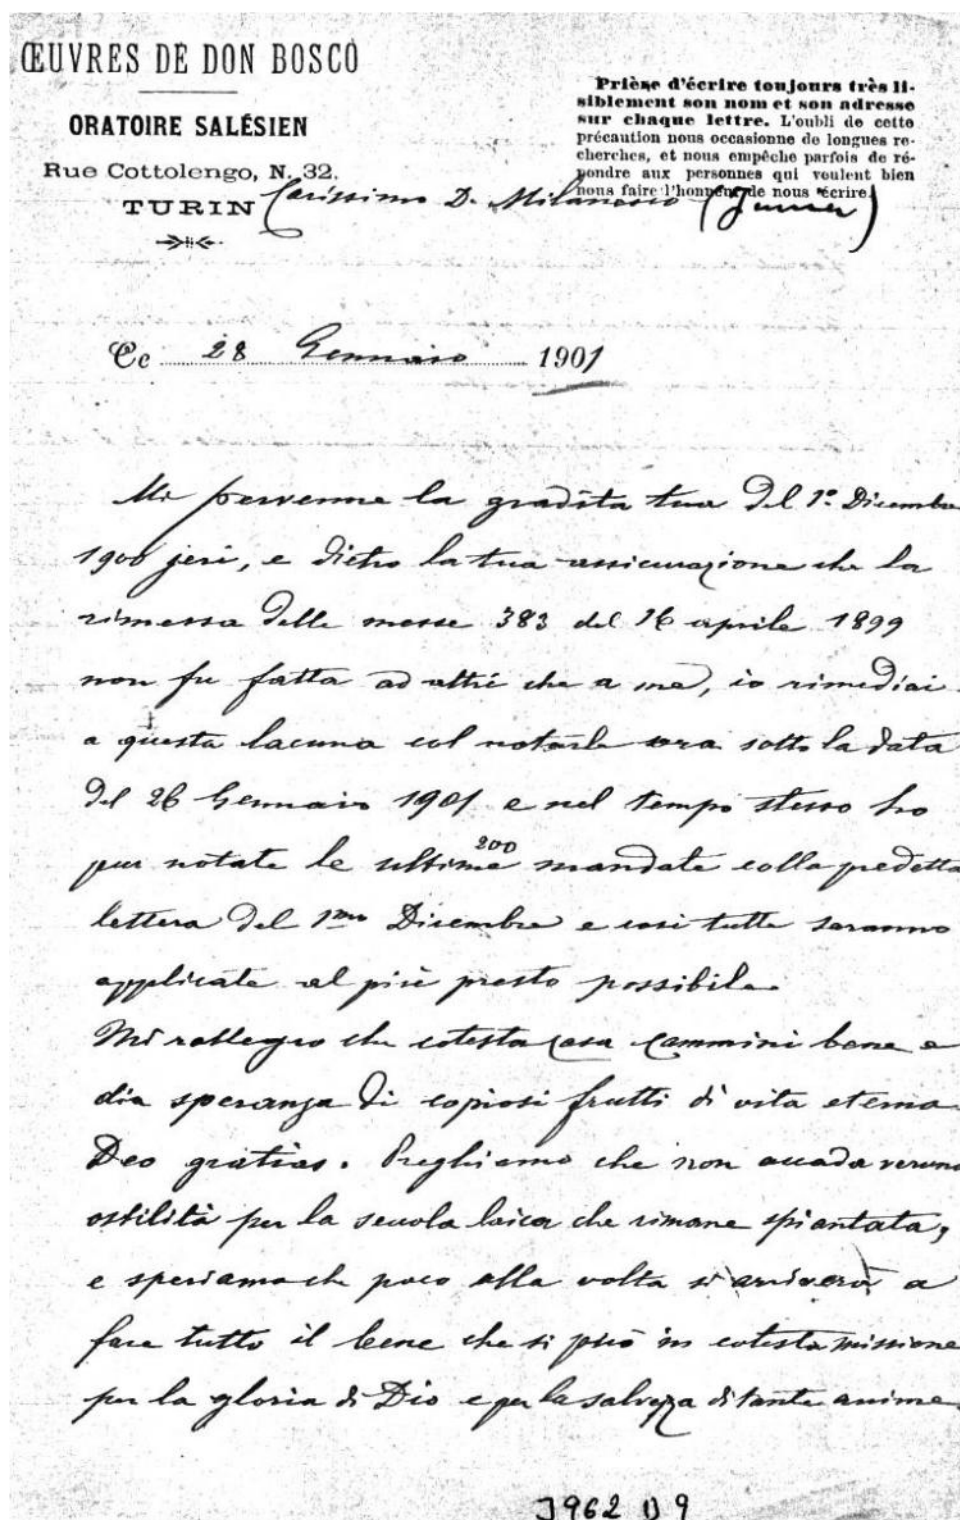 ŒUVRES DE DON BOSCO
ORATOIRE SALÉSIEN
Rue Cottolengo, N. 32.
TURIN
Prière d'écrire toujours très li-
siblement son nom et son adresse
sur chaque lettre. L'oubli de cette
précaution nous occasionne de longues re-
cherches, et nous empêche parfois de ré-
pondre aux personnes qui veulent bien
nous faire l'honneur de nous écrire.
Carissimo D. Milanesio
Ce 28 Gennaio 1901
Mi pervenne la gradita tua del 1º Dicembre
1900 jeri, e dietro la tua assicurazione che la
rimessa delle messe 383 del 16 aprile 1899
non fu fatta ad altri che a me, io rimediai
a questa lacuna col notarle ora sotto la data
del 26 Gennaio 1901 e nel tempo stesso ho
pur notate le ultime 200 mandate colla predetta
lettera del 1mo Dicembre e così tutte saranno
applicate al più presto possibile.
Mi rallegro che cotesta casa cammini bene e
dia speranza di copiosi frutti di vita eterna
Deo gratias. Preghiamo che non accada veruna
ostilità per la scuola laica che rimane spiantata,
e speriamo che poco alla volta si arriverà a
fare tutto il bene che si può in cotesta missione
per la gloria di Dio e per la salvezza di tante anime.
3962 D 9